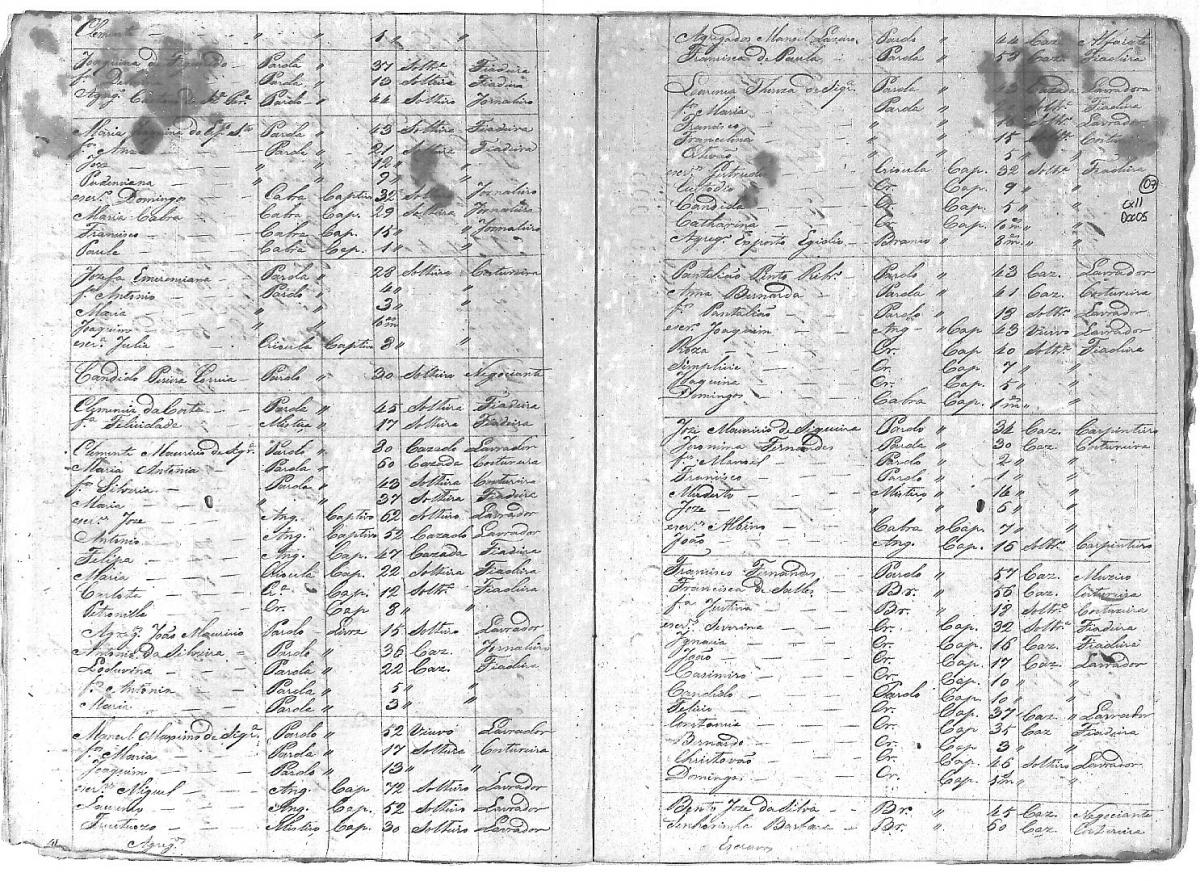 Clemente — " " 1 " "
Joaquina de — Parda " 37 Solt.ª Fiadeira
f.ª — Parda " 13 Solteira Fiadeira
Agreg.º Caetano de — Pardo " 44 Solteiro Jornaleiro
Maria Joaquina do Esp.º S.to Parda " 43 Solteira Fiadeira
f.ª Anna — Parda " 21 Solteira Fiadeira
Joze — " " 12 " "
Pudenciana — " " 9 " "
escr.º Domingos — Cabra Captivo 32 Solteiro Jornaleiro
Maria Cabra Cabra Cap. 29 Solteira Jornaleira
Francisco — Cabra Cap. 15 " Jornaleiro
Paula — Cabra Cap. 1 " "
Jozefa Emerenciana — Parda " 28 Solteira Costureira
f.º Antonio — Pardo " 4 " "
Maria — " " 3 " "
Joaquim — " " 6m "
escr.ª Julia — Crioula Captiva 8 " "
Candido Pereira Correia — Pardo " 30 Solteiro Negociante
Clemencia da Costa — Parda " 45 Solteira Fiadeira
f.ª Felicidade — Mistiça " 17 Solteira Fiadeira
Clemente Mauricio de Siq.ª Pardo " 80 Cazado Lavrador
Maria Antonia — Parda " 60 Cazada Costureira
f.ª Silveria — Parda " 43 Solteira Costureira
Maria — " " 37 Solteira Fiadeira
escr.º Joze — Ang. Captivo 62 Solteiro Lavrador
Antonio — Ang. Captivo 52 Cazado Lavrador
Felipa — Ang. Cap. 47 Cazada Fiadeira
Maria — Crioula Cap. 22 Solteira Fiadeira
Carlota — Cr.ª Cap. 12 Solt.ª Fiadeira
Petronilla — Cr. Cap. 8 " "
Agreg.º João Mauricio Pardo Livre 15 Solteiro Lavrador
Antonio da Silveira — Pardo " 36 Caz. Jornaleiro
Ludovina — Parda " 22 Caz. Fiadeira
f.ª Antonia — Parda " 5 " "
Maria — Parda " 3 " "
Manoel Maximo de Siq.ª Pardo " 52 Viuvo Lavrador
f.ª Maria — Parda " 17 Solteira Costureira
Joaquim — Pardo " 13 " "
escr.º Miguel — Ang. Cap. 72 Solteiro Lavrador
Lourenço — Ang. Cap. 52 Solteiro Lavrador
Fructuozo — Mistiço Cap. 30 Solteiro Lavrador
Agreg.º
Agregados Manoel Lazaro Pardo " 44 Caz. Alfaiate
Francisca de Paula — Parda " 51 Caz. Fiadeira
Lourença de Siq.ª Parda " Cazada Lavradora
f.ª Maria — Parda " Solt.ª Fiadeira
Francisco — " " Solt.º Lavrador
Francelina — " " 15 Solt.ª Costureira
— " " 5 " "
escr.ª Gertrudes Crioula Cap. 32 Solt.ª Fiadeira
Custodio — Cr. Cap. 9 " "
Candida — Cr. Cap. 5 " "
Catharina — Cr. Cap. 10m "
Agreg.º Exposto Egidio — Branco " 3m " "
107
Cx11
Doc05
Pantalião Pinto Rib.º Pardo " 43 Caz. Lavrador
Anna Bernarda — Parda " 41 Caz. Costureira
f.º Pantalião — Pardo " 18 Solt.º Lavrador
escr.º Joaquim — Ang. Cap. 43 Viuvo Lavrador
Roza — Cr. Cap. 40 Solt.ª Fiadeira
Simplicio — Cr. Cap. 7 " "
Joaquina — Cr. Cap. 5 " "
Domingos — Cabra Cap. 1m " "
Joze Mauricio de Siqueira Pardo " 34 Caz. Carpinteiro
Fernandes — Parda " 30 Caz. Costureira
f.º Manoel — Pardo " 2 " "
Francisco — Pardo " 1 " "
Modesto — Mistiço " 14 " "
Joze — " " 6 " "
escr.º Albino — Cabra Cap. 7 " "
João — Ang. Cap. 16 Solt.º Carpinteiro
Francisco Fernandes — Pardo " 57 Caz. Muzico
Francisca de Salles — Br. " 56 Caz. Costureira
f.ª Justina — Br. " 18 Solt.ª Costureira
escr.ª Severina — Cr. Cap. 32 Solt.ª Fiadeira
Ignacia — Cr. Cap. 16 Caz. Fiadeira
João — Cr. Cap. 17 Caz. Lavrador
Casimiro — Cr. Cap. 10 " "
Candido — Pardo Cap. 10 " "
Felicio — Cr. Cap. 37 Caz. Lavrador
Constancia — Cr. Cap. 35 Caz. Fiadeira
Bernardo — Cr. Cap. 3 " "
Christovão — Cr. Cap. 46 Solteiro Lavrador
Domingos — Cr. Cap. 1m " "
Bento Joze da Silva — Br. " 45 Caz. Negociante
Barbara — Br. " 60 Caz. Costureira
Escravos